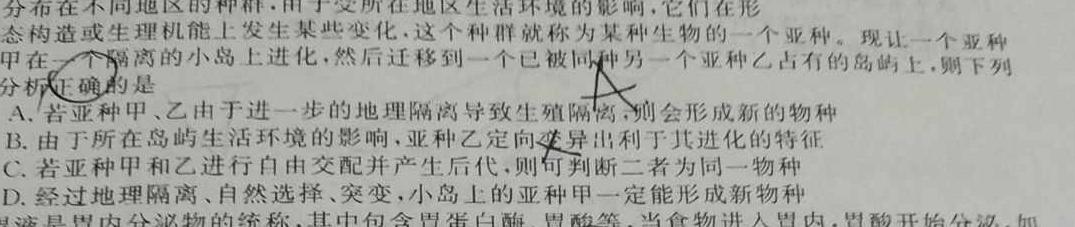 分布在不同地区的种群,由于受所在地区生活环境的影响,它们在形
态构造或生理机能上发生某些变化,这个种群就称为某种生物的一个亚种。现让一个亚种
甲在一个隔离的小岛上进化,然后迁移到一个已被同种另一个亚种乙占有的岛屿上,则下列
分析正确的是
A
A. 若亚种甲、乙由于进一步的地理隔离导致生殖隔离,则会形成新的物种
B. 由于所在岛屿生活环境的影响,亚种乙定向变异出利于其进化的特征
C. 若亚种甲和乙进行自由交配并产生后代,则可判断二者为同一物种
D. 经过地理隔离、自然选择、突变,小岛上的亚种甲一定能形成新物种
胃液是胃内分泌物的统称,其中包含胃蛋白酶、胃酸等,当食物进入胃内,胃酸开始分泌,如